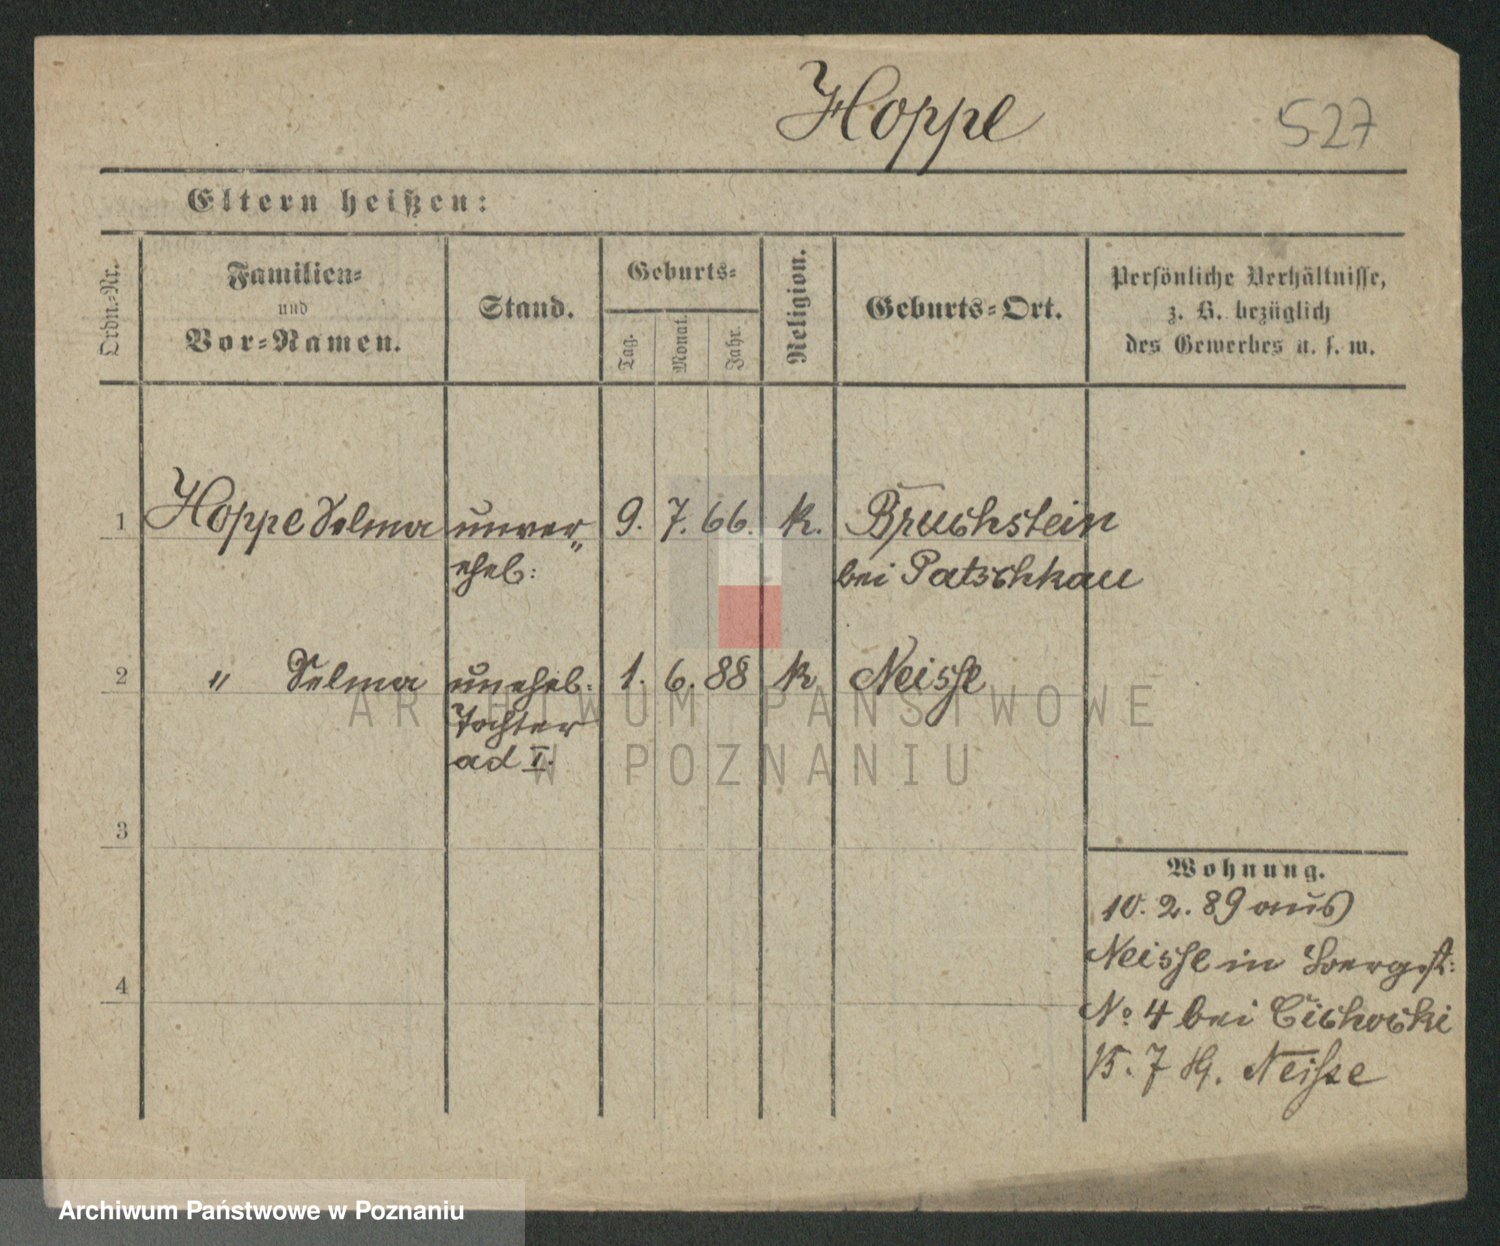 Hoppe
527
Eltern heißen:
Ordn.-Nr.
Familien-
und
Vor-Namen.
Stand.
Geburts-
Tag.
Monat.
Jahr.
Religion.
Geburts-Ort.
Persönliche Verhältnisse,
z. B. bezüglich
des Gewerbes u. s. w.
1 Hoppe Selma unver„ 9. 7. 66. k. Bruchstein
ehel: bei Patschkau
2 " Selma unehel: 1. 6. 88 k Neisse
Tochter
ad I.
3
4
Wohnung.
10. 2. 89 aus
Neisse in
No 4 bei Cichocki
15. 7 89. Neisse
ARCHIWUM PAŃSTWOWE
W POZNANIU
Archiwum Państwowe w Poznaniu